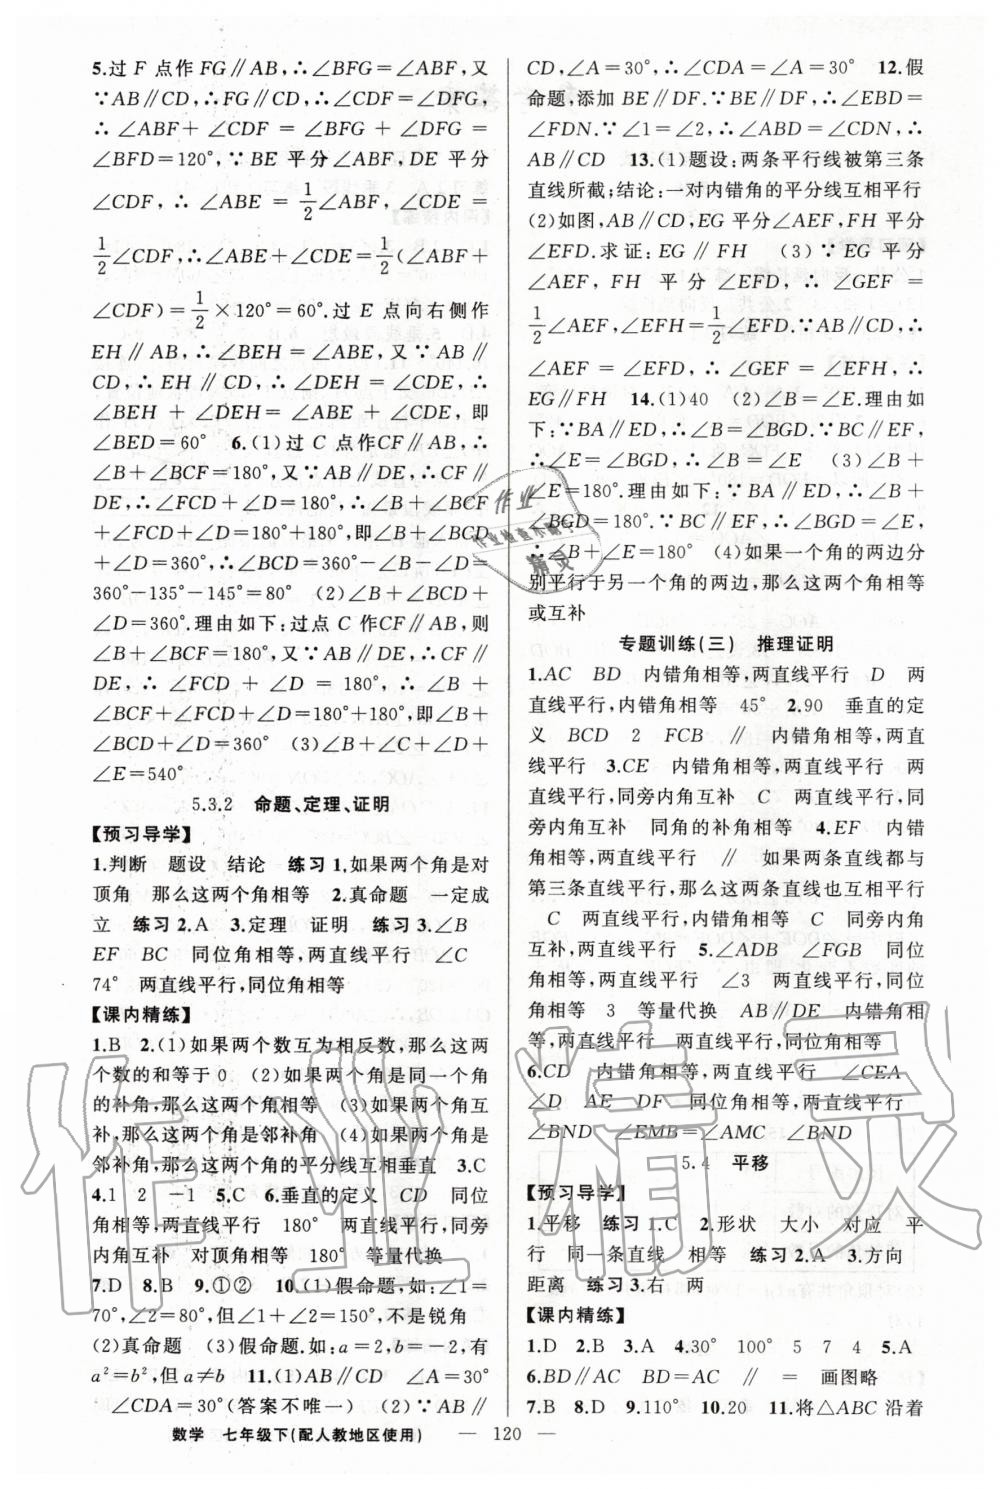 5.过 F 点作 FG∥AB,∴∠BFG=∠ABF,又
∵AB∥CD,∴FG∥CD,∴∠CDF=∠DFG,
∴ ∠ABF+ ∠CDF = ∠BFG + ∠DFG =
∠BFD=120°,∵BE 平分∠ABF,DE 平分
∠CDF,∴ ∠ABE = 1/2∠ABF,∠CDE =
1/2∠CDF,∴∠ABE+∠CDE=1/2(∠ABF+
∠CDF)=1/2×120°=60°.过 E 点向右侧作
EH∥AB,∴∠BEH=∠ABE,又∵AB∥
CD,∴EH∥CD,∴∠DEH=∠CDE,∴
∠BEH + ∠DEH= ∠ABE + ∠CDE,即
∠BED=60° 6.(1)过 C 点作CF∥AB,∴
∠B+∠BCF=180°,又∵AB∥DE,∴CF∥
DE,∴∠FCD+∠D=180°,∴∠B+∠BCF
+∠FCD+∠D=180°+180°,即∠B+∠BCD
+∠D=360°,∴∠BCD=360°-∠B-∠D=
360°-135°-145°=80° (2)∠B+∠BCD+
∠D=360°.理由如下:过点 C 作CF∥AB,则
∠B+∠BCF=180°,又∵AB∥DE,∴CF∥
DE,∴∠FCD + ∠D = 180°,∴ ∠B +
∠BCF+∠FCD+∠D=180°+180°,即∠B+
∠BCD+∠D=360° (3)∠B+∠C+∠D+
∠E=540°
5.3.2 命题、定理、证明
【预习导学】
1.判断 题设 结论 练习 1.如果两个角是对
顶角 那么这两个角相等 2.真命题 一定成
立 练习 2.A 3.定理 证明 练习 3.∠B
EF BC 同位角相等,两直线平行 ∠C
74° 两直线平行,同位角相等
【课内精练】
1.B 2.(1)如果两个数互为相反数,那么这两
个数的和等于 0 (2)如果两个角是同一个角
的补角,那么这两个角相等 (3)如果两个角互
补,那么这两个角是邻补角 (4)如果两个角是
邻补角,那么这两个角的平分线互相垂直 3.C
4.1 2 -1 5.C 6.垂直的定义 CD 同位
角相等,两直线平行 180° 两直线平行,同旁
内角互补 对顶角相等 180° 等量代换
7.D 8.B 9.①② 10.(1)假命题,如:∠1=
70°,∠2=80°,但∠1+∠2=150°,不是锐角
(2)真命题 (3)假命题.如:a=2,b=-2,有
a²=b²,但 a≠b 11.(1)AB∥CD ∠A=30°
∠CDA=30°(答案不唯一) (2)∵AB∥
CD,∠A=30°,∴∠CDA=∠A=30° 12.假
命题,添加 BE∥DF.∵BE∥DF,∴∠EBD=
∠FDN.∵∠1=∠2,∴∠ABD=∠CDN,∴
AB∥CD 13.(1)题设:两条平行线被第三条
直线所截;结论:一对内错角的平分线互相平行
(2)如图,AB∥CD,EG 平分∠AEF,FH 平分
∠EFD.求证:EG∥FH (3)∵EG 平分
∠AEF,FH 平分∠EFD,∴∠GEF=
1/2∠AEF,∠EFH=1/2∠EFD.∵AB∥CD,∴
∠AEF = ∠EFD,∴ ∠GEF = ∠EFH,∴
EG∥FH 14.(1)40 (2)∠B=∠E.理由如
下:∵BA∥ED,∴∠B=∠BGD.∵BC∥EF,
∴∠E=∠BGD,∴∠B=∠E (3)∠B+
∠E=180°.理由如下:∵BA∥ED,∴∠B+
∠BGD=180°.∵BC∥EF,∴∠BGD=∠E,
∴∠B+∠E=180° (4)如果一个角的两边分
别平行于另一个角的两边,那么这两个角相等
或互补
专题训练(三) 推理证明
1.AC BD 内错角相等,两直线平行 D 两
直线平行,内错角相等 45° 2.90 垂直的定
义 BCD 2 FCB ∥ 内错角相等,两直
线平行 3.CE 内错角相等,两直线平行 两
直线平行,同旁内角互补 C 两直线平行,同
旁内角互补 同角的补角相等 4.EF 内错
角相等,两直线平行 ∥ 如果两条直线都与
第三条直线平行,那么这两条直线也互相平行
C 两直线平行,内错角相等 C 同旁内角
互补,两直线平行 5.∠ADB ∠FGB 同位
角相等,两直线平行 ∠3 两直线平行,同位
角相等 3 等量代换 AB∥DE 内错角相
等,两直线平行 两直线平行,同位角相等
6.CD 内错角相等,两直线平行 ∠CEA
∠D AE DF 同位角相等,两直线平行
∠BND ∠EMB=∠AMC ∠BND
5.4 平移
【预习导学】
1.平移 练习 1.C 2.形状 大小 对应 平
行 同一条直线 相等 练习 2.A 3.方向
距离 练习 3.右 两
【课内精练】
1.D 2.B 3.A 4.30° 100° 5 7 4 5.A
6.BD∥AC BD=AC ∥ = 画图略
7.B 8.D 9.110° 10.20 11.将△ABC 沿着
数学 七年级下(配人教地区使用) — 120 —
作业
作业检查小助手
精灵
作业精灵